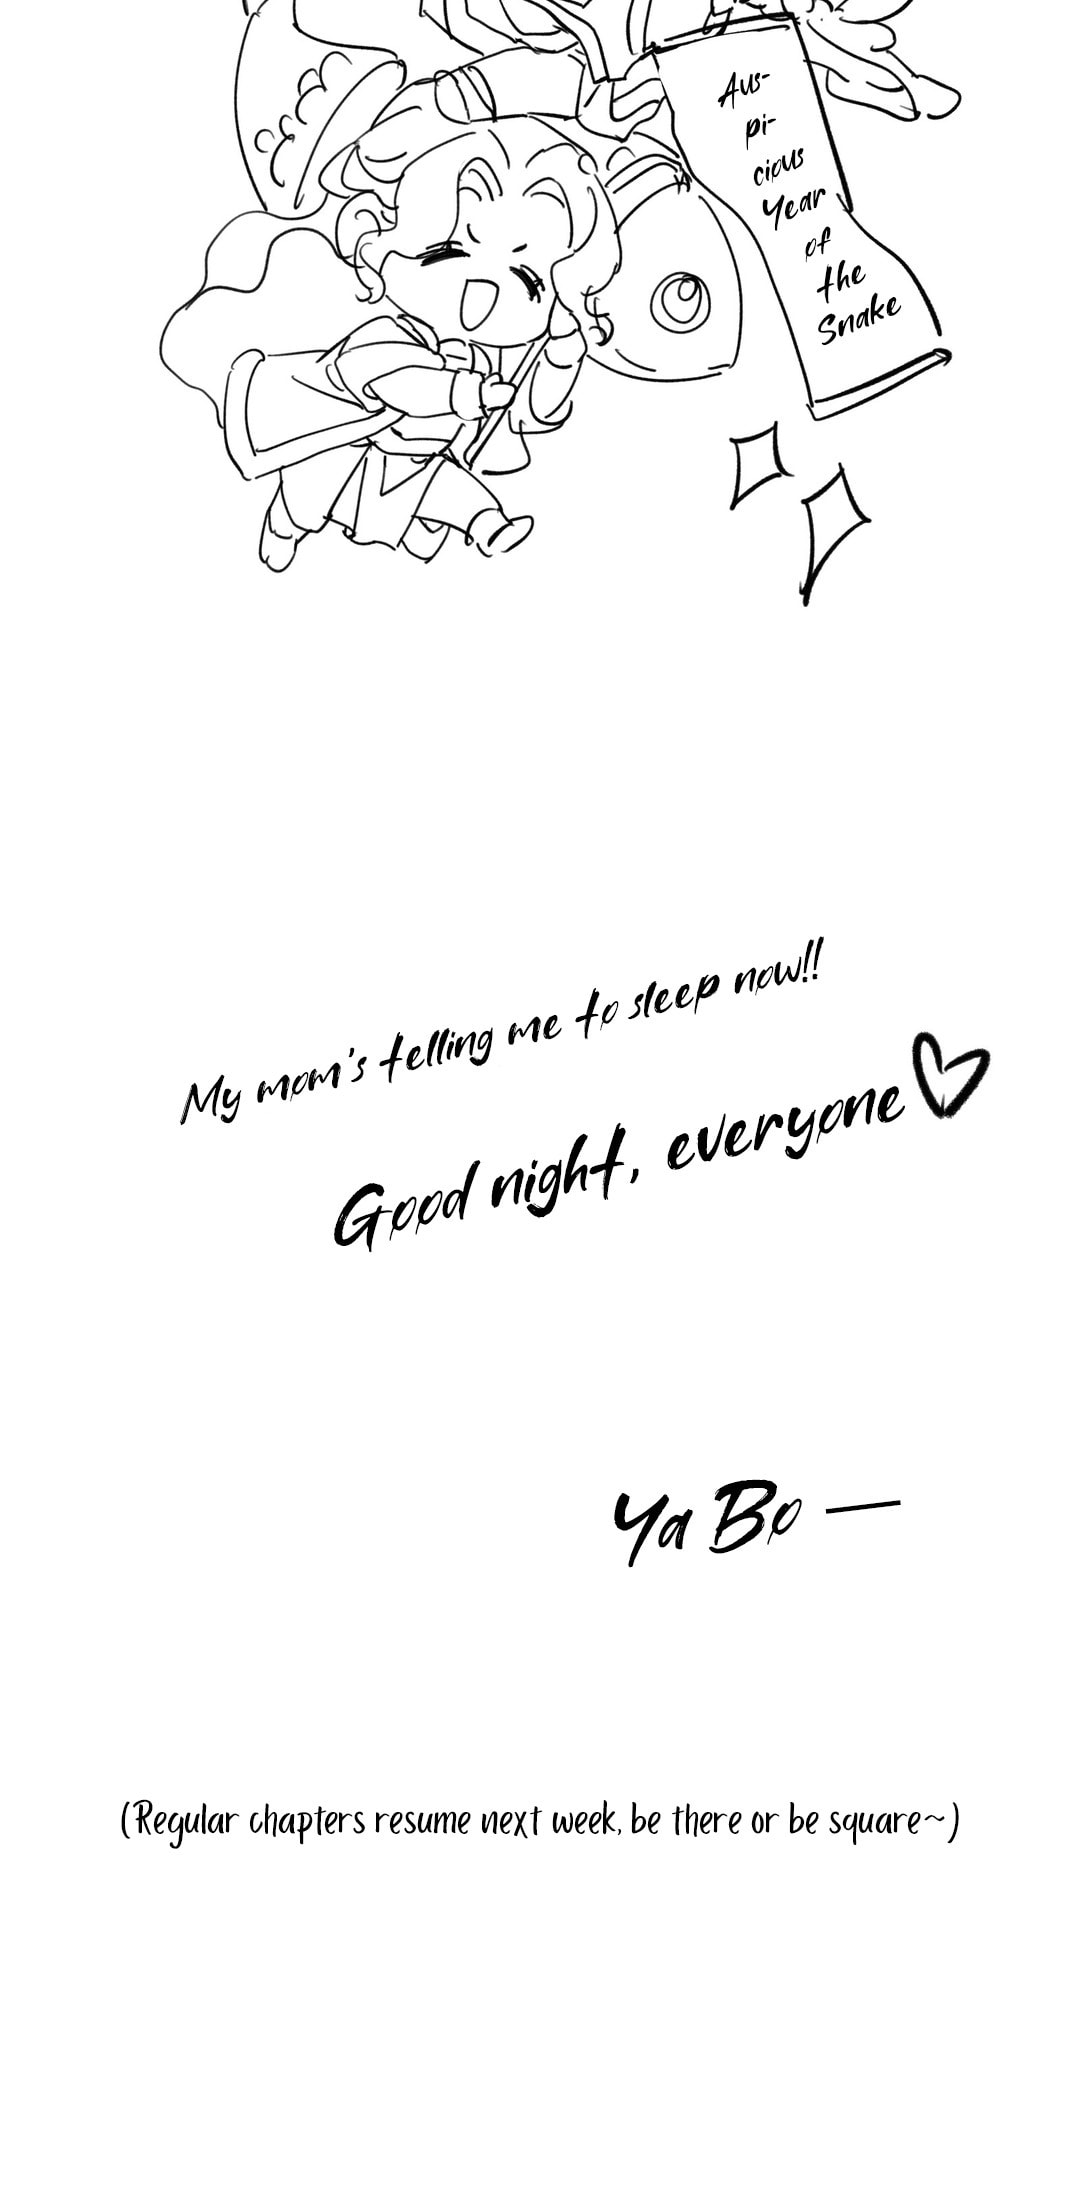 Aus-
pi-
cious
Year
of
the
Snake
My mom's telling me to sleep now!!
Good night, everyone♡
Ya Bo —
(Regular chapters resume next week, be there or be square~)